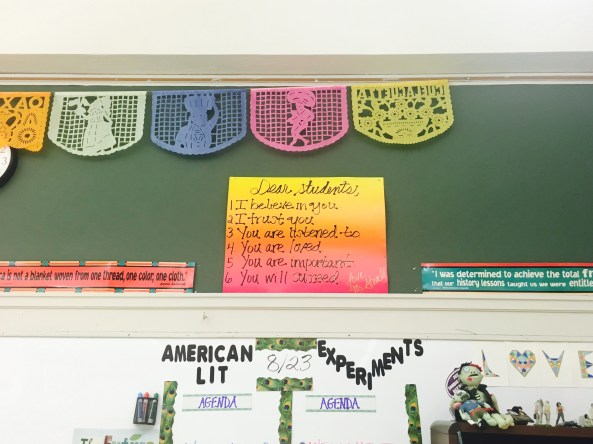 GUELAGUETZA
Dear students,
1 I believe in you
2 I trust you
3 You are listened to
4 You are loved
5 You are important
6 You will succeed
is not a blanket woven from one thread, one color, one cloth."
"I was determined to achieve the total
that our history lessons taught us we were
AMERICAN LIT
8/23
EXPERIMENTS
AGENDA
AGENDA
LOVE